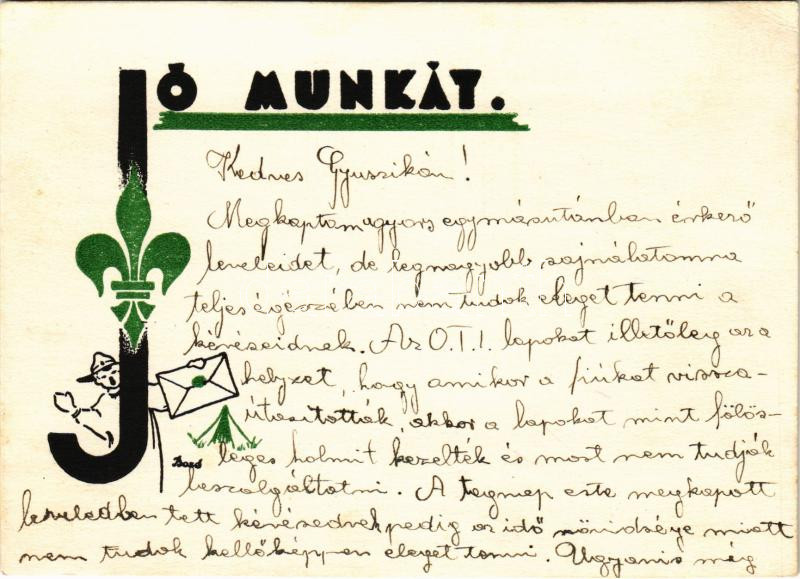 JÓ MUNKÁT.
Kedves Gyuszikám!
Megkaptam gyors egymásutánban érkező
leveleidet, de legnagyobb sajnálatomra
teljes égészében nem tudok eleget tenni a
kéréseidnek. Az O.T.I. lapokat illetőleg az a
helyzet, hogy amikor a fiúkat vissza-
útasították, akkor a lapokat mint fölös-
leges holmit kezelték és most nem tudják
beszolgáltatni. A tegnap este megkapott
Bozó
leveledben tett kérésednek pedig az idő rövidsége miatt
nem tudok kellőképpen eleget tenni. Ugyanis még